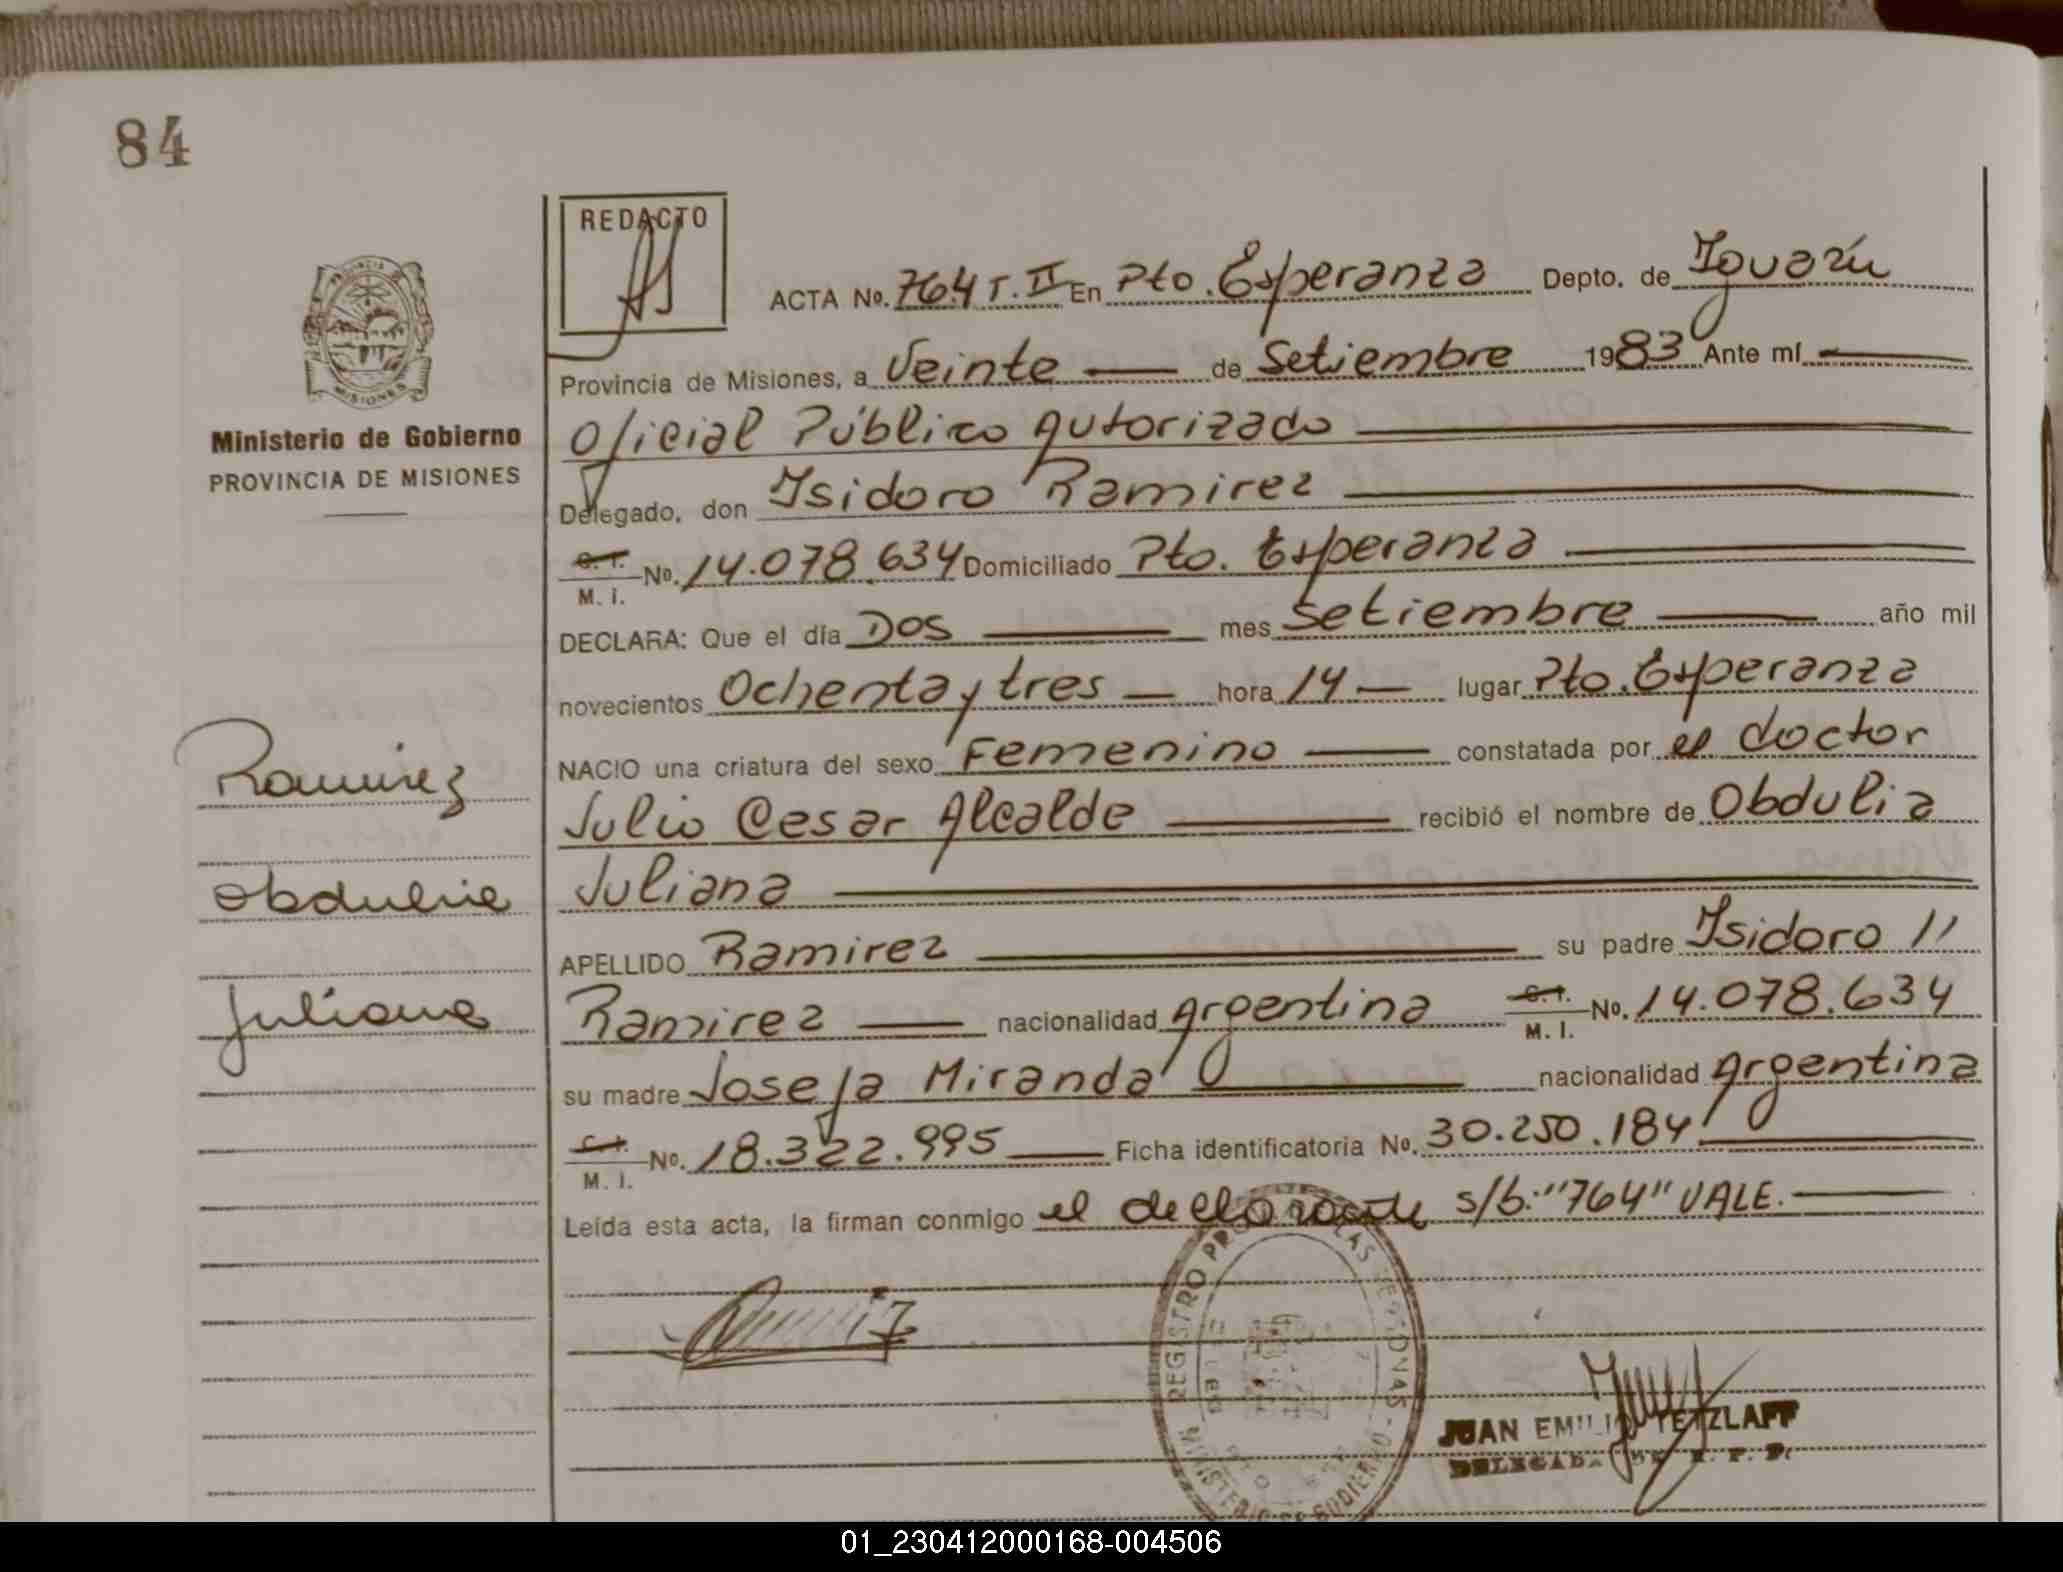 84
REDACTO
ACTA No. 764 T. II En Pto. Esperanza Depto. de Iguazú
PROVINCIA DE
MISIONES
Provincia de Misiones, a Veinte — de Setiembre 1983 Ante mí —
Ministerio de Gobierno
PROVINCIA DE MISIONES
Oficial Público Autorizado —
Delegado, don Isidoro Ramirez —
C. I.
M. I. No. 14.078.634 Domiciliado Pto. Esperanza —
DECLARA: Que el día Dos — mes setiembre — año mil
novecientos Ochenta y tres — hora 14 — lugar Pto. Esperanza
NACIO una criatura del sexo Femenino — constatada por el doctor
Julio Cesar Alcalde — recibió el nombre de Obdulia
Juliana —
APELLIDO Ramirez — su padre Isidoro //
Ramirez — nacionalidad Argentina C. I.
M. I. No. 14.078.634
su madre Josefa Miranda — nacionalidad Argentina
C. I.
M. I. No. 18.322.995 — Ficha identificatoria No. 30.250.184 —
Leída esta acta, la firman conmigo el declarante s/b: "764" VALE. —
Ramirez
Obdulia
Juliana
REGISTRO PROVINCIAL DE LAS PERSONAS
MINISTERIO DE GOBIERNO
JUAN EMILIO TETZLAFF
DELEGADO R. P. P.
01_230412000168-004506